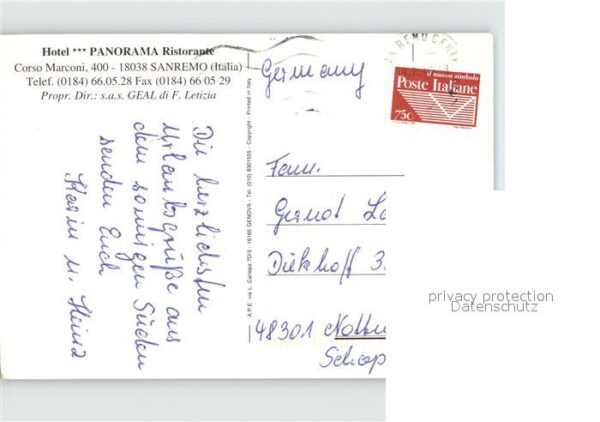 Hotel *** PANORAMA Ristorante
Corso Marconi, 400 - 18038 SANREMO (Italia)
Telef. (0184) 66.05.28 Fax (0184) 66 05 29
Propr. Dir.: s.a.s. GEAL di F. Letizia
Die herzlichsten
Urlaubsgrüße aus
dem sonnigen Süden
senden Euch
Karin u. Heinz
A.P.E. via L. Canepa 7D/3 - 16165 GENOVA - Tel. (010) 8301555 - Copyright - Printed in Italy
Germany
SANREMO
il nuovo simbolo
Poste Italiane
750
Fam.
Gernot
Diekhoff 3
48301 Nottu
Schap
privacy protection
Datenschutz